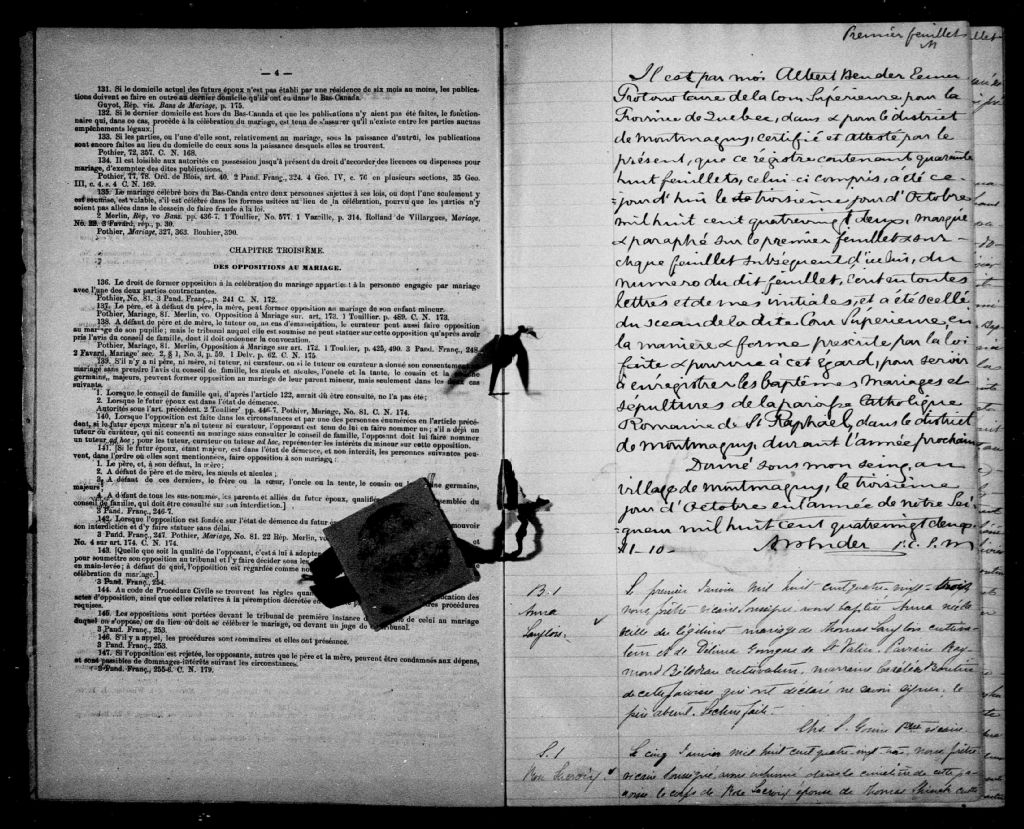 — 4 —
131. Si le domicile actuel des futurs époux n'est pas établi par une résidence de six mois au moins, les publica-
tions doivent se faire en outre au dernier domicile qu'ils ont eu dans le Bas-Canada.
Guyot, Rép. vis. Bans de Mariage, p. 175.
132. Si le dernier domicile est hors du Bas-Canada et que les publications n'y aient pas été faites, le fonction-
naire qui, dans ce cas, procède à la célébration du mariage, est tenu de s'assurer qu'il n'existe entre les parties aucuns
empêchements légaux.]
133. Si les parties, ou l'une d'elle sont, relativement au mariage, sous la puissance d'autrui, les publications
sont encore faites au lieu du domicile de ceux sous la puissance desquels elles se trouvent.
Pothier, 72, 357. C. N. 168.
134. Il est loisible aux autorités en possession jusqu'à présent du droit d'accorder des licences ou dispenses pour
mariage, d'exempter des dites publications.
Pothier, 77, 78. Ord. de Blois, art. 40. 2 Pand. Franç., 324. 4 Geo. IV, c. 76 en plusieurs sections, 35 Geo.
III, c. 4. s. 4 C. N. 169.
135. Le mariage célébré hors du Bas-Canda entre deux personnes sujettes à ses lois, ou dont l'une seulement y
est soumise, est valable, s'il est célébré dans les formes usitées au lieu de la célébration, pourvu que les parties n'y
soient pas allées dans le dessein de faire fraude à la loi.
2 Merlin, Rép, vo Bans. pp. 436-7. 1 Toullier, No. 577. 1 Vazeille, p. 314. Rolland de Villargues, Mariage,
No. 3 Favard, rép., p. 39.
Pothier, Mariage, 327, 363. Bouhier, 390.
CHAPITRE TROISIÈME.
DES OPPOSITIONS AU MARIAGE.
136. Le droit de former opposition à la célébration du mariage appartient à la personne engagée par mariage
avec l'une des deux parties contractantes.
Pothier, No. 81. 3 Pand. Franç., p. 241 C. N. 172.
137. Le père, et à défaut du père, la mère, peut former opposition au mariage de son enfant mineur.
Pothier, Mariage, 81. Merlin, vo. Opposition à Mariage sur. art. 173. 1 Touillier. p. 489. C. N. 173.
138. A défaut de père et de mère, le tuteur ou, au cas d'émancipation, le curateur peut aussi faire opposition
au mariage de son pupille ; mais le tribunal auquel elle est soumise ne peut statuer sur cette opposition qu'après avoir
pris l'avis du conseil de famille, dont il doit ordonner la convocation.
Pothier, Mariage, 81. Merlin, Opposition à Mariage sur art. 172. 1 Toullier, p. 425, 490. 3 Pand. Franç., 248
2 Favard, Mariage sec. 2, § 1, No. 3, p. 59. 1 Delv. p. 62. C. N. 175.
139. S'il n'y a ni père, ni mère, ni tuteur, ni curateur, ou si le tuteur ou curateur a donné son consentement au
mariage sans prendre l'avis du conseil de famille, les aïeuls et aïeules, l'oncle et la tante, le cousin et la cousine
germains, majeurs, peuvent former opposition au mariage de leur parent mineur, mais seulement dans les deux cas
suivants.
1. Lorsque le conseil de famille qui, d'après l'article 122, aurait dû être consulté, ne l'a pas été ;
2. Lorsque le futur époux est dans l'état de démence.
Autorités sous l'art. précédent. 2 Toullier pp. 446-7. Pothier, Mariage, No. 81. C. N. 174.
140. Lorsque l'opposition est faite dans les circonstances et par une des personnes énumérées en l'article précé-
dent, si le futur époux mineur n'a ni tuteur ni curateur, l'opposant est tenu de lui en faire nommer un ; s'il a déjà un
tuteur ou curateur, qui ait consenti au mariage sans consulter le conseil de famille, l'opposant doit lui faire nommer
un tuteur ad hoc ; pour les tuteur, curateur ou tuteur ad hoc, représenter les intérêts du mineur sur cette opposition.
141. [Si le futur époux, étant majeur, est dans l'état de démence, et non interdit, les personnes suivantes peu-
vent, dans l'ordre où elles sont mentionnées, faire opposition à son mariage :
1. Le père, et, à son défaut, la mère ;
2. A défaut de père et de mère, les aïeuls et aïeules ;
3. A défaut de ces derniers, le frère ou la sœur, l'oncle ou la tente, le cousin ou germains,
majeurs ;
4. A défaut de tous les sus-nommés, les parents et alliés du futur époux, qualifi semblée du
conseil de famille, qui doit être consulté sur son interdiction.]
3 Pand. Franç., 246-7.
142. Lorsque l'opposition est fondée sur l'état de démence du futur mouvoir
son interdiction et d'y faire statuer sans délai.
3 Pand. Franç., 247. Pothier, Mariage, No. 81. 22 Rép. Merlin, vo
No. 4 sur art. 174. C. N. 174.
143. [Quelle que soit la qualité de l'opposant, c'est à lui à adopter
pour soumettre son opposition au tribunal et l'y faire décider sous les
en main-levée ; à défaut de quoi, l'opposition est regardée comme
célébration du mariage.]
3 Pand. Franç., 254.
144. Au code de Procédure Civile se trouvent les règles qua cation des
actes d'opposition, ainsi que celles relatives à la péremption décrétée res procédures
requises.
145. Les oppositions sont portées devant le tribunal de première instance de celui au mariage
duquel on s'oppose, ou du lieu où doit se célébrer le mariage, ou devant un juge de tribunal.
3 Pand. Franç., 253.
146. S'il y a appel, les procédures sont sommaires et elles ont préséance.
3 Pand. Franç., 253.
147. Si l'opposition est rejetée, les opposants, autres que le père et la mère, peuvent être condamnés aux dépens,
et sont passibles de dommages-intérêts suivant les circonstances.
3 Pand. Franç., 255-6. C. N. 179.
Premier feuillet
Il est par moi Albert Bender Ecuier
Protonotaire de la Cour Supérieure, pour la
Province de Quebec, dans & pour le district
de Montmagny, certifié et attesté par le
présent, que ce régistre contenant quarante
huit feuillets, celui-ci compris, a été ce-
jourd'hui le troisième jour d'Octobre
mil huit cent quatrevingt deux, marqué
& paraphé sur le premier feuillet & sur
chque feuillet subséquent d'icelui, du
numero du dit feuillet, écrit en toutes
lettres et de mes initiales, et a été scellé
du sceau de la dite Cour Supérieure, en
la manière & forme prescrite par la loi
faite & pourvue à cet égard, pour servir
à enregistrer les baptêmes mariages et
sépultures de la paroisse Catholique
Romaine de St Raphael, dans le district
de Montmagny, durant l'année prochaine
Donné sous mon seing, au
village de Montmagny, le troisième
jour d'Octobre en l'année de notre Sei-
gneur mil huit cent quatrevingt deux
A Bender P.C.S.M
B. 1
Anna
Langlois.
Le premier Janvier mil huit cent quatre-vingt-trois
nous prêtre vicaire soussigné avons baptisé Anna née de
veille du légitime mariage de Thomas Langlois cultiva-
teur et de Délima Goingues de St Valier. Parrain Ray-
mond Bilodeau cultivateur, marraine Boutin
de cette paroisse, qui ont déclaré ne savoir signer, le
père absent. Lecture faite.
Chs S. Gouin Ptre vicaire.
S. 1
Rose Lacroix
Le cinq Janvier mil huit cent quatre-vingt nous prêtre
vicaire soussigné, avons inhumé dans le cimetière de cette pa-
roisse le corps de Rose Lacroix épouse de Thomas